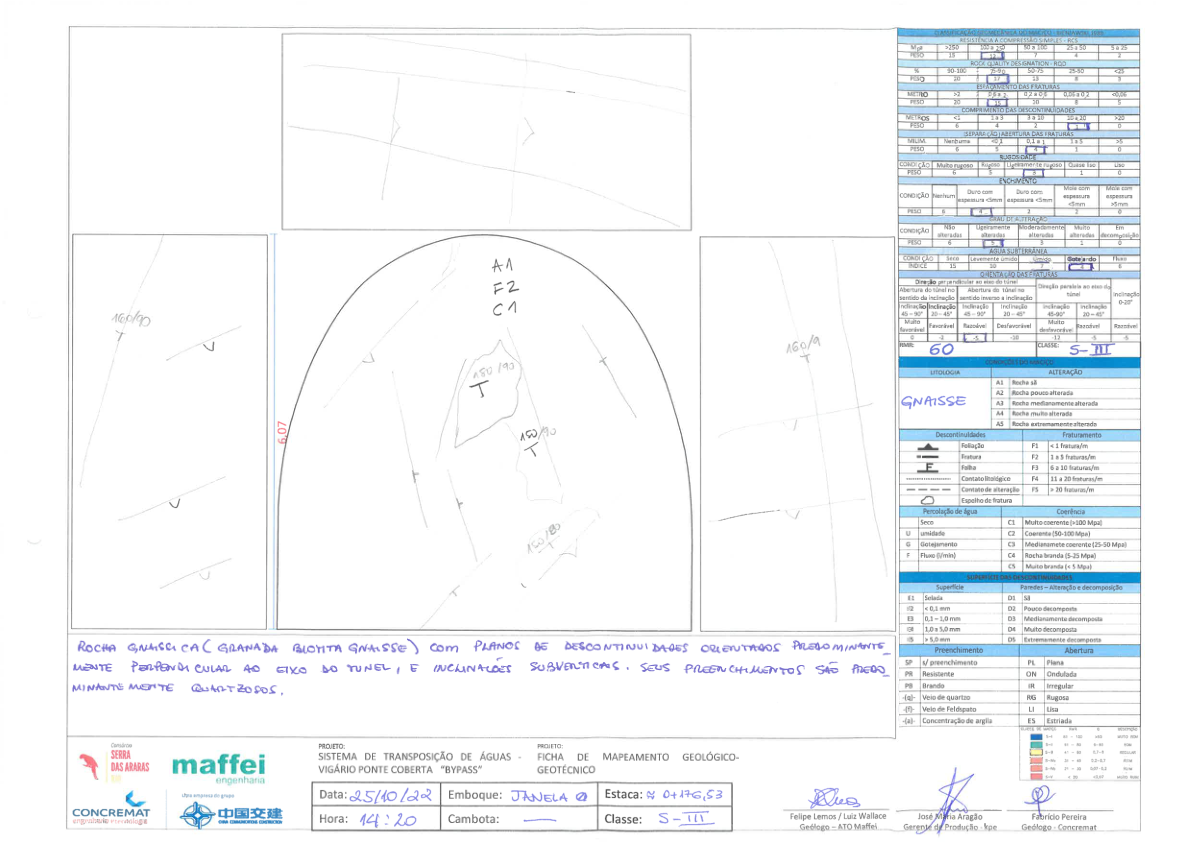 CLASSIFICAÇÃO GEOMECÂNICA DO MACIÇO - BIENIAWSKI, 1989
RESISTÊNCIA A COMPRESSÃO SIMPLES - RCS
MPa >250 100 a 250 50 a 100 25 a 50 5 a 25
PESO 15 12 7 4 2
ROCK QUALITY DESIGNATION - RQD
% 90-100 75-90 50-75 25-50 <25
PESO 20 17 13 8 3
ESPAÇAMENTO DAS FRATURAS
METRO >2 0,6 a 2 0,2 a 0,6 0,06 a 0,2 <0,06
PESO 20 15 10 8 5
COMPRIMENTO DAS DESCONTINUIDADES
METROS <1 1 a 3 3 a 10 10 a 20 >20
PESO 6 4 2 1 0
(SEPARAÇÃO) ABERTURA DAS FRATURAS
MILIM. Nenhuma <0,1 0,1 a 1 1 a 5 >5
PESO 6 5 4 1 0
RUGOSIDADE
CONDIÇÃO Muito rugoso Rugoso Ligeiramente rugoso Quase liso Liso
PESO 6 5 3 1 0
ENCHIMENTO
CONDIÇÃO Nenhum Duro com espessura <5mm Duro com espessura <5mm Mole com espessura <5mm Mole com espessura >5mm
PESO 6 4 2 2 0
GRAU DE ALTERAÇÃO
CONDIÇÃO Não alteradas Ligeiramente alteradas Moderadamente alteradas Muito alteradas Em decomposição
PESO 6 5 3 1 0
ÁGUA SUBTERRÂNEA
CONDIÇÃO Seco Levemente úmido Úmido Gotejando Fluxo
ÍNDICE 15 10 7 4
ORIENTAÇÃO DAS FRATURAS
Direção perpendicular ao eixo do túnel
Direção paralela ao eixo do túnel
Inclinação 0-20°
Abertura do túnel no sentido da inclinação
Abertura do túnel no sentido inverso a inclinação
Inclinação 45 – 90° Inclinação 20 – 45° Inclinação 45 – 90° Inclinação 20 – 45° Inclinação 45-90° Inclinação 20 – 45°
Muito favorável Favorável Razoável Desfavorável Muito desfavorável Razoável Razoável
0 -2 -5 -10 12 -5 -5
RMR: 60 CLASSE: S-III
CONDIÇÕES DO MACIÇO
LITOLOGIA ALTERAÇÃO
GNAISSE
A1 Rocha sã
A2 Rocha pouco alterada
A3 Rocha medianamente alterada
A4 Rocha muito alterada
A5 Rocha extramamente alterada
Descontinuidades Fraturamento
Foliação F1 < 1 fratura/m
Fratura F2 1 a 5 fraturas/m
F Falha F3 6 a 10 fraturas/m
Contato litológico F4 11 a 20 fraturas/m
Contato de alteração F5 > 20 fraturas/m
Espelho de fratura
Percolação de água Coerência
Seco C1 Muito coerente (>100 Mpa)
U umidade C2 Coerente (50-100 Mpa)
G Gotejamento C3 Medianamete coerente (25-50 Mpa)
F Fluxo (l/min) C4 Rocha branda (5-25 Mpa)
C5 Muito branda (< 5 Mpa)
SUPERFÍCIE DAS DESCONTINUIDADES
Superfície Paredes – Alteração e decomposição
E1 Selada D1 Sã
E2 < 0,1 mm D2 Pouco decomposta
E3 0,1 – 1,0 mm D3 Medianamente decomposta
1,0 a 5,0 mm D4 Muito decomposta
≥ 5,0 mm D5 Extremamente decomposta
Preenchimento Abertura
SP s/ preenchimento PL Plana
PR Resistente ON Ondulada
PB Brando IR Irregular
-(q)- Veio de quartzo RG Rugosa
-(f)- Veio de Feldspato LI Lisa
-(a)- Concentração de argila ES Estriada
160/90
A1
F2
C1
150/90
150/90
150/80
160/9
6,07
ROCHA GNAISSICA (GRANADA BIOTITA GNAISSE) COM PLANOS DE DESCONTINUIDADES ORIENTADOS PREDOMINANTE_
MENTE PERPENDICULAR AO EIXO DO TUNEL, E INCLINAÇÕES SUBVERTICAIS. SEUS PREENCHIMENTOS SÃO PREDO_
MINANTEMENTE QUARTZOSOS.
Consórcio
SERRA
DAS ARARAS
maffei
engenharia
CONCREMAT
engenharia e tecnologia
Uma empresa do grupo
中国交建
CHINA COMMUNICATIONS CONSTRUCTION
PROJETO:
SISTEMA DE TRANSPOSIÇÃO DE ÁGUAS -
VIGÁRIO PONTE COBERTA "BYPASS"
PROJETO:
FICHA DE MAPEAMENTO GEOLÓGICO-
GEOTÉCNICO
Data: 25/10/22 Emboque: JANELA Ø Estaca: ≈ 0+176,53
Hora: 14:20 Cambota: — Classe: S-III
Felipe Lemos / Luiz Wallace
Geólogo – ATO Maffei
José Maria Aragão
Gerente de Produção - kpe
Fabrício Pereira
Geólogo - Concremat